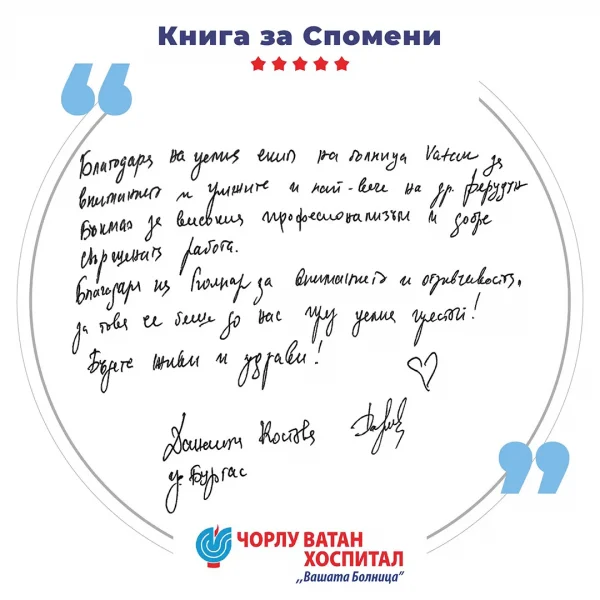 Книга за Спомени
Благодаря на целия екип на болница Vatan за
вниманието и грижите и най-вече на др.Ферудун
за високия професионализъм и добре
свършената работа.
Благодаря на за вниманието и отзивчивостта,
за това че беше до нас през целия престой!
Бъдете живи и здрави!
Костова
гр. Бургас
ЧОРЛУ ВАТАН
ХОСПИТАЛ
,,Вашата Болница"